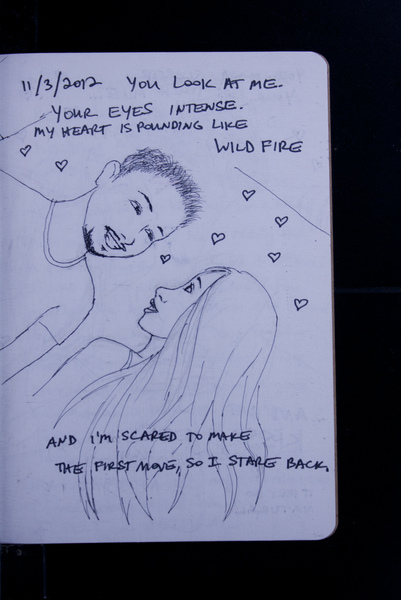 11/3/2012 YOU LOOK AT ME.
YOUR EYES INTENSE.
MY HEART IS POUNDING LIKE
WILD FIRE
AND I'M SCARED TO MAKE
THE FIRST MOVE, SO I STARE BACK.